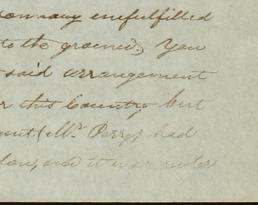 unfulfilled
to the ground, You
said arrangement
this Country but
(Mr. Perry) had
and it was under